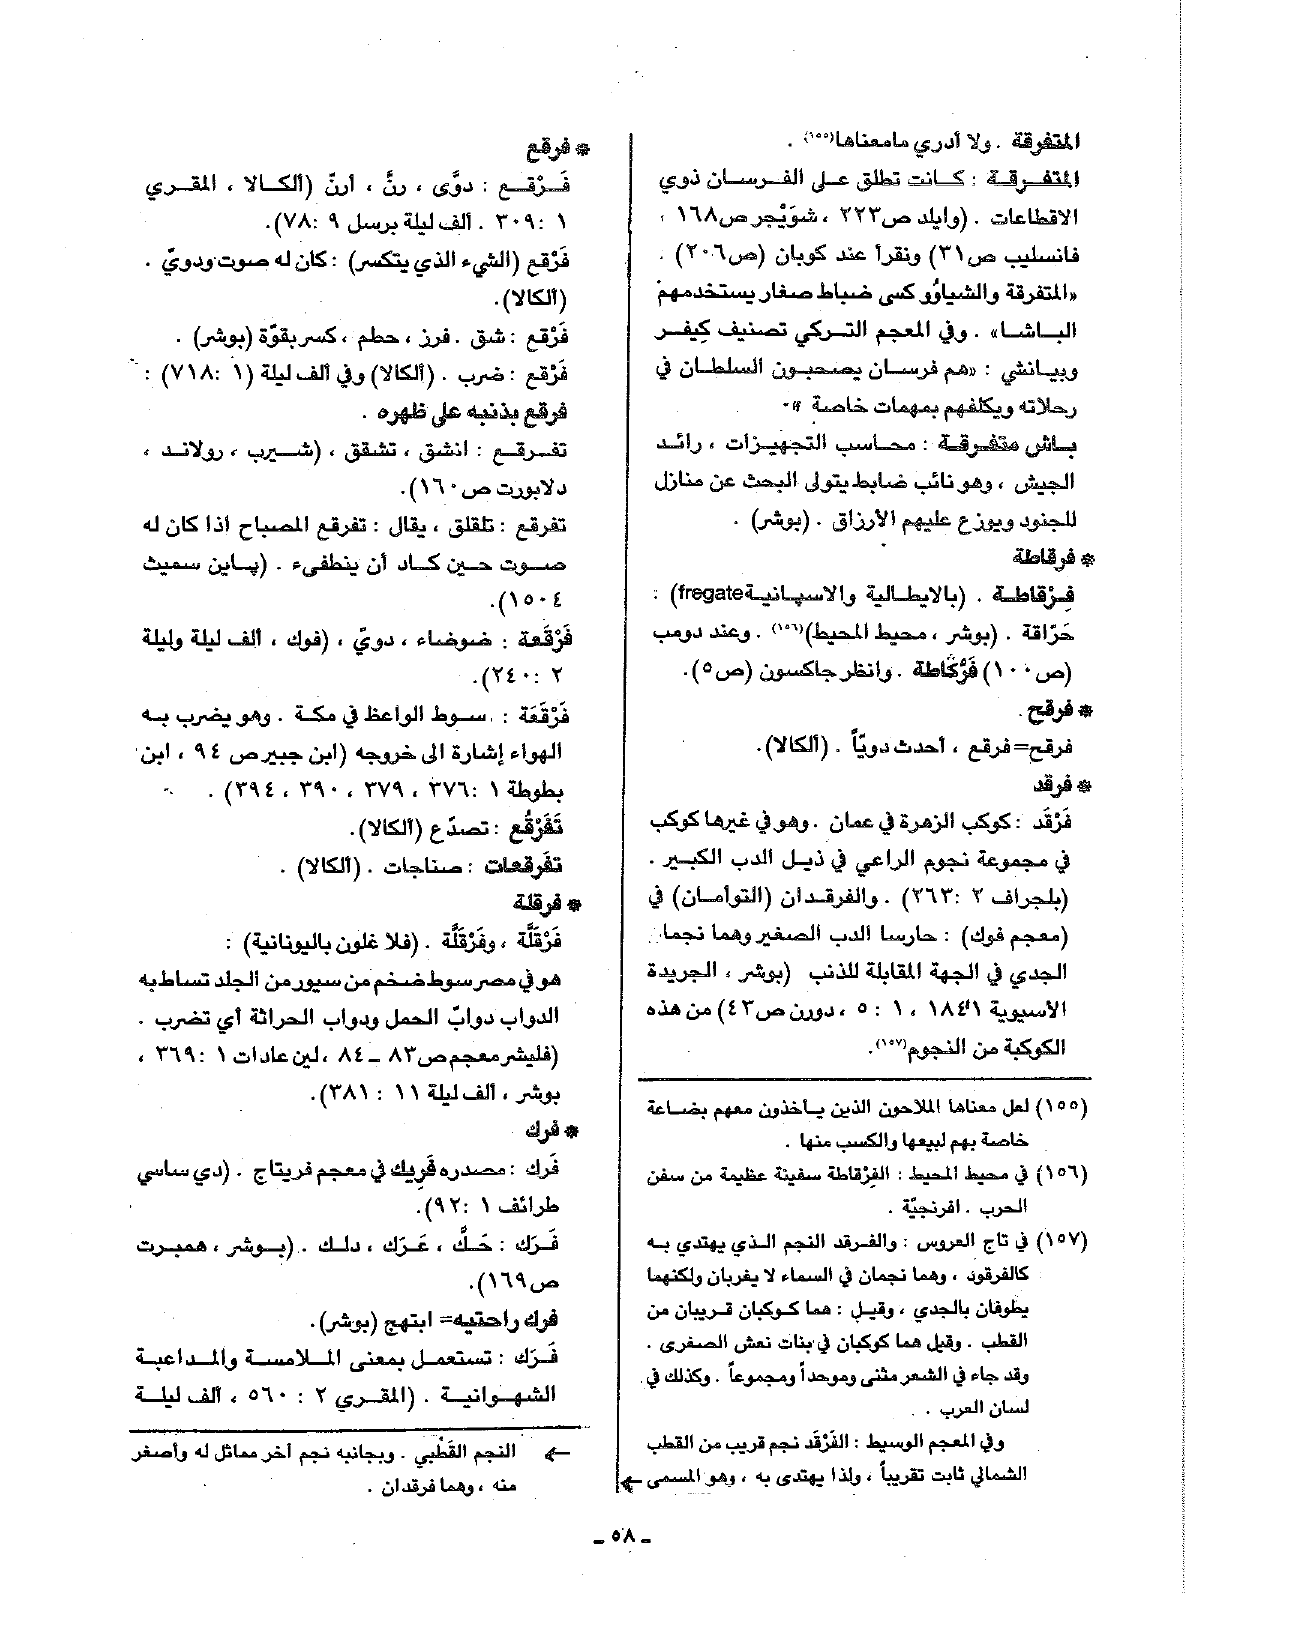 المتفرقة . ولا أدري مامعناها(١٥٥) .
المتفرقة : كانت تطلق على الفرسان ذوي
الاقطاعات . (وايلد ص٢٢٣ ، شويجر ص١٦٨ ،
فانسليب ص٣١) ونقرأ عند كوبان (ص٢٠٦) .
«المتفرقة والشياؤو كسى ضباط صغار يستخدمهم
الباشا» . وفي المعجم التركي تصنيف كيفر
وبيانشي : «هم فرسان يصحبون السلطان في
رحلاته ويكلفهم بمهمات خاصة »٠
باش متفرقة : محاسب التجهيزات ، رائد
الجيش ، وهو نائب ضابط يتولى البحث عن منازل
للجنود ويوزع عليهم الأرزاق . (بوشر) .
* فرقاطة
فرقاطة . (بالايطالية والاسبانية fregate) :
حَرّاقة . (بوشر ، محيط المحيط)(١٥٦) . وعند دومب
(ص١٠٠) فَرْكَاطة . وانظر جاكسون (ص٥).
* فرقح .
فرقح=فرقع ، أحدث دويّاً . (ألكالا).
* فرقد
فَرْقَد : كوكب الزهرة في عمان . وهو في غيرها كوكب
في مجموعة نجوم الراعي في ذيل الدب الكبير .
(بلجراف ٢ :٢٦٣) . والفرقدان (التوأمان) في
(معجم فوك) : حارسا الدب الصغير وهما نجما
الجدي في الجهة المقابلة للذنب (بوشر ، الجريدة
الآسيوية ١٨٤١ ، ١ : ٥ ، دورن ص٤٢) من هذه
الكوكبة من النجوم(١٥٧).
(١٥٥) لعل معناها الملاحون الذين يأخذون معهم بضاعة
خاصة بهم لبيعها والكسب منها .
(١٥٦) في محيط المحيط : الفرْقاطة سفينة عظيمة من سفن
الحرب . افرنجيّة .
(١٥٧) في تاج العروس : والفرقد النجم الذي يهتدي به
كالفرقود ، وهما نجمان في السماء لا يغربان ولكنهما
يطوفان بالجدي ، وقيل : هما كوكبان قريبان من
القطب . وقيل هما كوكبان في بنات نعش الصغرى .
وقد جاء في الشعر مثنى وموحداً ومجموعاً . وكذلك في
لسان العرب .
وفي المعجم الوسيط : الفَرْقَد نجم قريب من القطب
الشمالي ثابت تقريباً ، ولذا يهتدى به ، وهو المسمى ←
* فرقع
فَرْقع : دوَّى ، رنَّ ، أرنّ (ألكالا ، المقري
١ :٣٠٩ . ألف ليلة برسل ٩ :٧٨).
فَرْقع (الشيء الذي يتكسر) : كان له صوت ودويّ .
(ألكالا).
فَرْقع : شق . فرز ، حطم ، كسر بقوّة (بوشر) .
فَرْقع : ضرب . (ألكالا) وفي ألف ليلة (١ :٧١٨) :
فرقع بذنبه على ظهره .
تفرقع : انشق ، تشقق ، (شيرب ، رولاند ،
دلابورت ص١٦٠).
تفرقع : تلقلق ، يقال : تفرقع المصباح اذا كان له
صوت حين كاد أن ينطفىء . (پاين سميث
١٥٠٤).
فَرْقَعة : ضوضاء ، دويّ ، (فوك ، ألف ليلة وليلة
٢ :٢٤٠).
فَرْقَعَة : سوط الواعظ في مكة . وهو يضرب به
الهواء إشارة الى خروجه (ابن جبير ص ٩٤ ، ابن
بطوطة ١ :٣٧٦ ، ٣٧٩ ، ٣٩٠ ، ٣٩٤) .
تَفَرْقُع : تصدّع (ألكالا).
تفرقعات : صناجات . (ألكالا) .
* فرقلة
فَرْقَلَّة ، وفَرْقِلَّة . (فلا غلون باليونانية) :
هو في مصر سوط ضخم من سيور من الجلد تساط به
الدواب دوابّ الحمل ودواب الحراثة أي تضرب .
(فليشر معجم ص٨٣ – ٨٤ ، لين عادات ١ :٣٦٩ ،
بوشر ، ألف ليلة ١١ : ٣٨١).
* فرك
فَرك : مصدره فَريك في معجم فريتاج . (دي ساسي
طرائف ١ :٩٢).
فَرَك : حَكَّ ، عَرَك ، دلك . (بوشر ، همبرت
ص١٦٩).
فرك راحتيه= ابتهج (بوشر).
فَرَك : تستعمل بمعنى الملامسة والمداعبة
الشهوانية . (المقري ٢ : ٥٦٠ ، ألف ليلة
← النجم القَطْبي . وبجانبه نجم آخر مماثل له وأصغر
منه ، وهما فرقدان .
ـ ٥٨ ـ